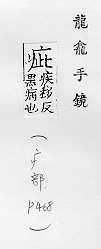 龍龕手鏡
疵
疾移反
黑病也
(疒部 P468)